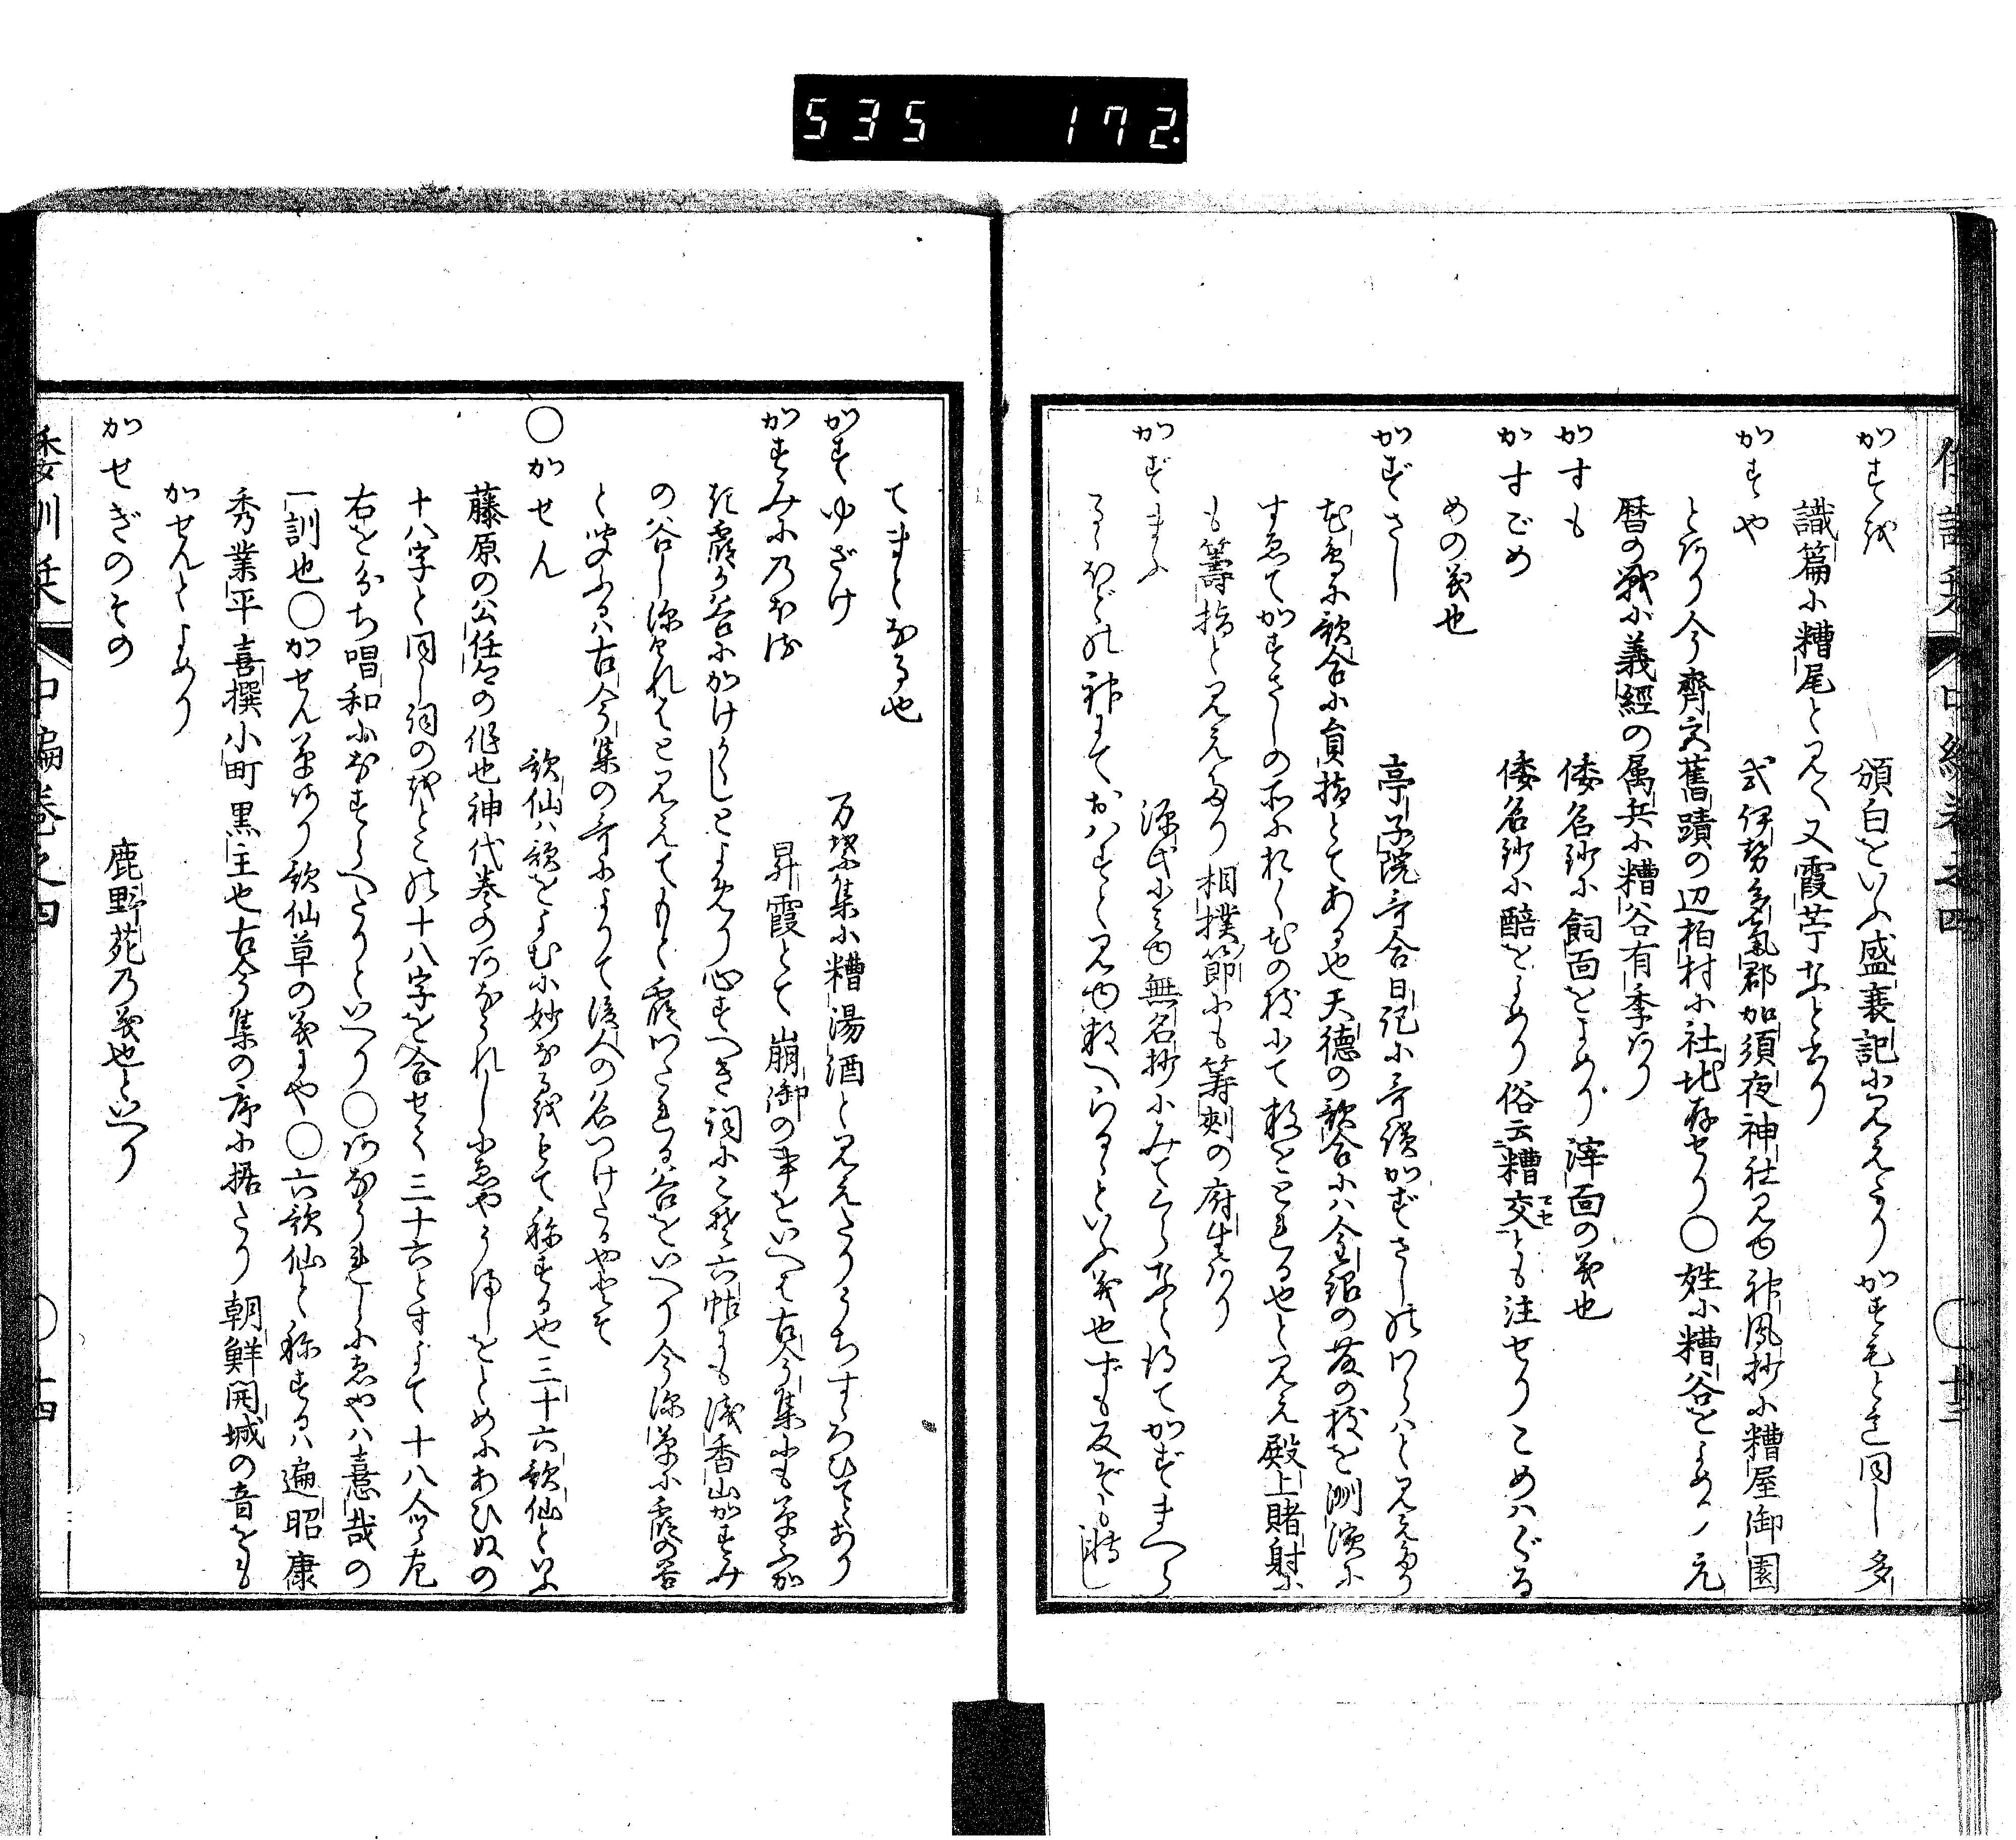 535 172.
かすを 頒白をいふ盛衰記に見えたりかす毛とも同し多
識篇に糟尾と見ゆ又霞苧なと書り
かすや 式伊勢多氣郡加須夜神社見ゆ神鳳抄に糟屋御園
とあり今齊宮舊蹟の辺柏村に社地存せり○姓に糟谷をよめり元
暦の戦に義經の属兵に糟谷有季あり
かすも 倭名鈔に飼面をよめり滓面の義也
かすごめ 倭名鈔に醅をよめり俗云糟交とも注せりこめはくゝる
めの義也
かずさし 亭子院哥合日記に哥讀かずさしのわらはと見えたり
花鳥に歌合に員指とてある也天徳の歌合には金銀の花の枝を洲濱に
すゑてかすさしの所におく花の枝にて数をとる也と見え殿上賭射に
も籌指と見えたり相撲節にも籌刺の府生あり
かずまふ 源氏に見ゆ無名抄にみてくらなと得てかずまへら
るゝほどの神にておはすと見ゆ数へらるゝといふ義也
てまとなる也
かすゆざけ 万葉集に糟湯酒と見えたりうちすゝろひてとあり
かすみにのぼる 昇霞とて崩御の事をいへは古今集にも草ふか
き霞の谷にかけかくしとよめり心すへき詞にこそ六帖にも浅香山かすみ
の谷し深けれはと見えてもと霞わたれる谷をいへり今深草に霞の谷
と呼ふは古今集の哥によりて後人の名つけたるやとそ
○かせん 歌仙は歌をよむに妙なるをもて称する也三十六歌仙といふ
藤原の公任卿の作也神代巻のあなうれしにゑやうましをとめにあひぬの
十八字と同し詞のをとこの十八字を合せて三十六とすよて十八人つゝ左
右を分ち唱和になすらへたりといへり○あなうれしにゑやは憙哉の
一訓也○かせん草あり歌仙草の義にや○六歌仙と称するは遍昭康
秀業平喜撰小町黒主也古今集の序に据たり朝鮮開城の音をも
かせんとよめり
かせぎのその 鹿野苑の義也といへり
倭訓栞 中編巻之四 ○十四